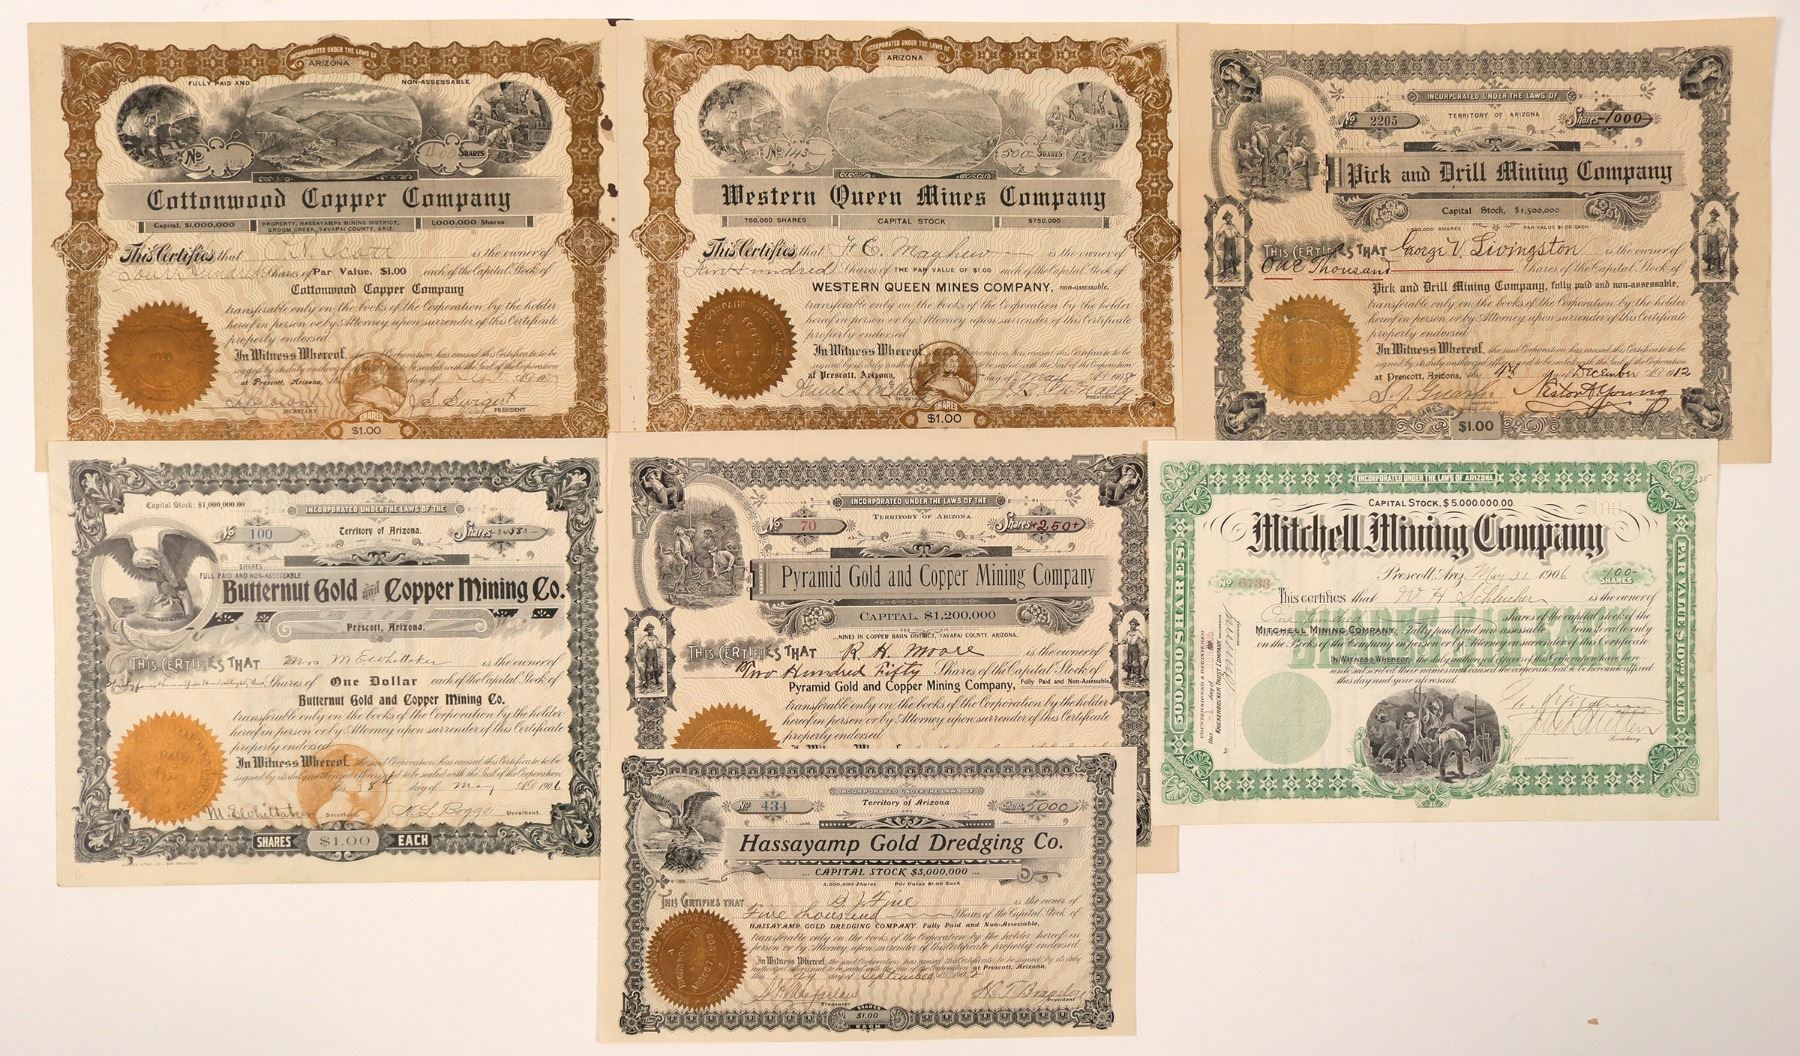 INCORPORATED UNDER THE LAWS OF
ARIZONA
FULLY PAID AND NON-ASSESSABLE
No SHARES
Cottonwood Copper Company
Capital, $1,000,000 PROPERTY, HASSAYAMPA MINING DISTRICT, GROOM CREEK, YAVAPAI COUNTY, ARIZ. 1,000,000 Shares
This Certifies that Scott is the owner of
Four Hundred Shares of Par Value, $1.00 each of the Capital Stock of
Cottonwood Copper Company
transferable only on the books of the Corporation by the holder
hereof in person or by Attorney upon surrender of this Certificate
properly endorsed.
In Witness Whereof, the said Corporation has caused this Certificate to be
signed by its duly authorized officers and to be sealed with the Seal of the Corporation
at Prescott, Arizona, this day of
SECRETARY PRESIDENT
SHARES
$1.00
INCORPORATED UNDER THE LAWS OF
ARIZONA
No 143 500 SHARES
Western Queen Mines Company
750,000 SHARES CAPITAL STOCK $750,000
This Certifies that is the owner of
Five Hundred Shares of THE PAR VALUE OF $1.00 each of the Capital Stock of
WESTERN QUEEN MINES COMPANY, non-assessable.
transferable only on the books of the Corporation by the holder
hereof in person or by Attorney upon surrender of this Certificate
properly endorsed.
In Witness Whereof, the said Corporation has caused this Certificate to be
signed by its duly authorized officers and to be sealed with the Seal of the Corporation
at Prescott, Arizona, day of
PRESIDENT
SHARES
$1.00
INCORPORATED UNDER THE LAWS OF
No 2205 TERRITORY OF ARIZONA Shares 1000
Pick and Drill Mining Company
Capital Stock, $1,500,000
SHARES PAR VALUE $1.00 EACH
THIS CERTIFIES THAT George V. Livingston is the owner of
One Thousand Shares of the Capital Stock of
Pick and Drill Mining Company, fully paid and non-assessable,
transferable only on the books of the Corporation by the holder
hereof in person or by Attorney upon surrender of this Certificate
properly endorsed.
In Witness Whereof, the said Corporation has caused this Certificate to be
signed by its duly authorized officers and to be sealed with the Seal of the Corporation
at Prescott, Arizona, this day of December 1912
SECRETARY
SHARES
$1.00
Capital Stock: $1,000,000.00
INCORPORATED UNDER THE LAWS OF THE
No 100 Territory of Arizona. Shares
SHARES
FULL PAID AND NON-ASSESSABLE
Butternut Gold and Copper Mining Co.
Prescott, Arizona.
THIS CERTIFIES THAT Mrs M E Whittaker is the owner of
Shares of One Dollar each of the Capital Stock of
Butternut Gold and Copper Mining Co.
transferable only on the books of the Corporation by the holder
hereof in person or by Attorney upon surrender of this Certificate
properly endorsed.
In Witness Whereof, the said Corporation has caused this Certificate to be
signed by its duly authorized officers and to be sealed with the Seal of the Corporation
this 8th day of May A.D. 1906
M. E. Whittaker Secretary. President.
SHARES $1.00 EACH
INCORPORATED UNDER THE LAWS OF THE
No 70 TERRITORY OF ARIZONA. Shares 250
Pyramid Gold and Copper Mining Company
CAPITAL, $1,200,000
...MINES IN COPPER BASIN DISTRICT, YAVAPAI COUNTY, ARIZONA.
THIS CERTIFIES THAT R. H. Moore is the owner of
Two Hundred Fifty Shares of the Capital Stock of
Pyramid Gold and Copper Mining Company, Fully Paid and Non-Assessable,
transferable only on the books of the Corporation by the holder
hereof in person or by Attorney upon surrender of this Certificate
properly endorsed.
INCORPORATED UNDER THE LAWS OF ARIZONA
CAPITAL STOCK, $5.000.000.00.
Mitchell Mining Company
Prescott, Arz. May 31 1906
No 6733 100 SHARES
This certifies that W H Schleicher is the owner of
One Hundred shares of the capital stock of the
MITCHELL MINING COMPANY, Fully paid and non assessable. Transferable only
on the Books of the Company in person or by Attorney on surrender of this Certificate
IN WITNESS WHEREOF, the duly authorized officers of this Corporation have here
unto subscribed their names and caused the corporate seal to be hereunto affixed
this day and year aforesaid.
Secretary
500.000 SHARES
PAR VALUE $10.00 EACH
COUNTERSIGNED & REGISTERED
KNICKERBOCKER TRUST COMPANY
INCORPORATED UNDER THE LAWS OF
No 434 Territory of Arizona 5000
Hassayamp Gold Dredging Co.
... CAPITAL STOCK $3,000,000 ...
3,000,000 Shares Par Value $1.00 Each
THIS CERTIFIES THAT is the owner of
Five thousand Shares of the Capital Stock of
HASSAYAMP GOLD DREDGING COMPANY, Fully Paid and Non-Assessable,
transferable only on the books of the Corporation by the holder hereof in
person or by Attorney, upon surrender of this Certificate properly endorsed.
In Witness Whereof, the said Corporation has caused this Certificate to be signed by its duly
authorized officers and to be sealed with the Seal of the Corporation at Prescott, Arizona,
this 29 day of September
Treasurer President
SHARES
$1.00
EACH